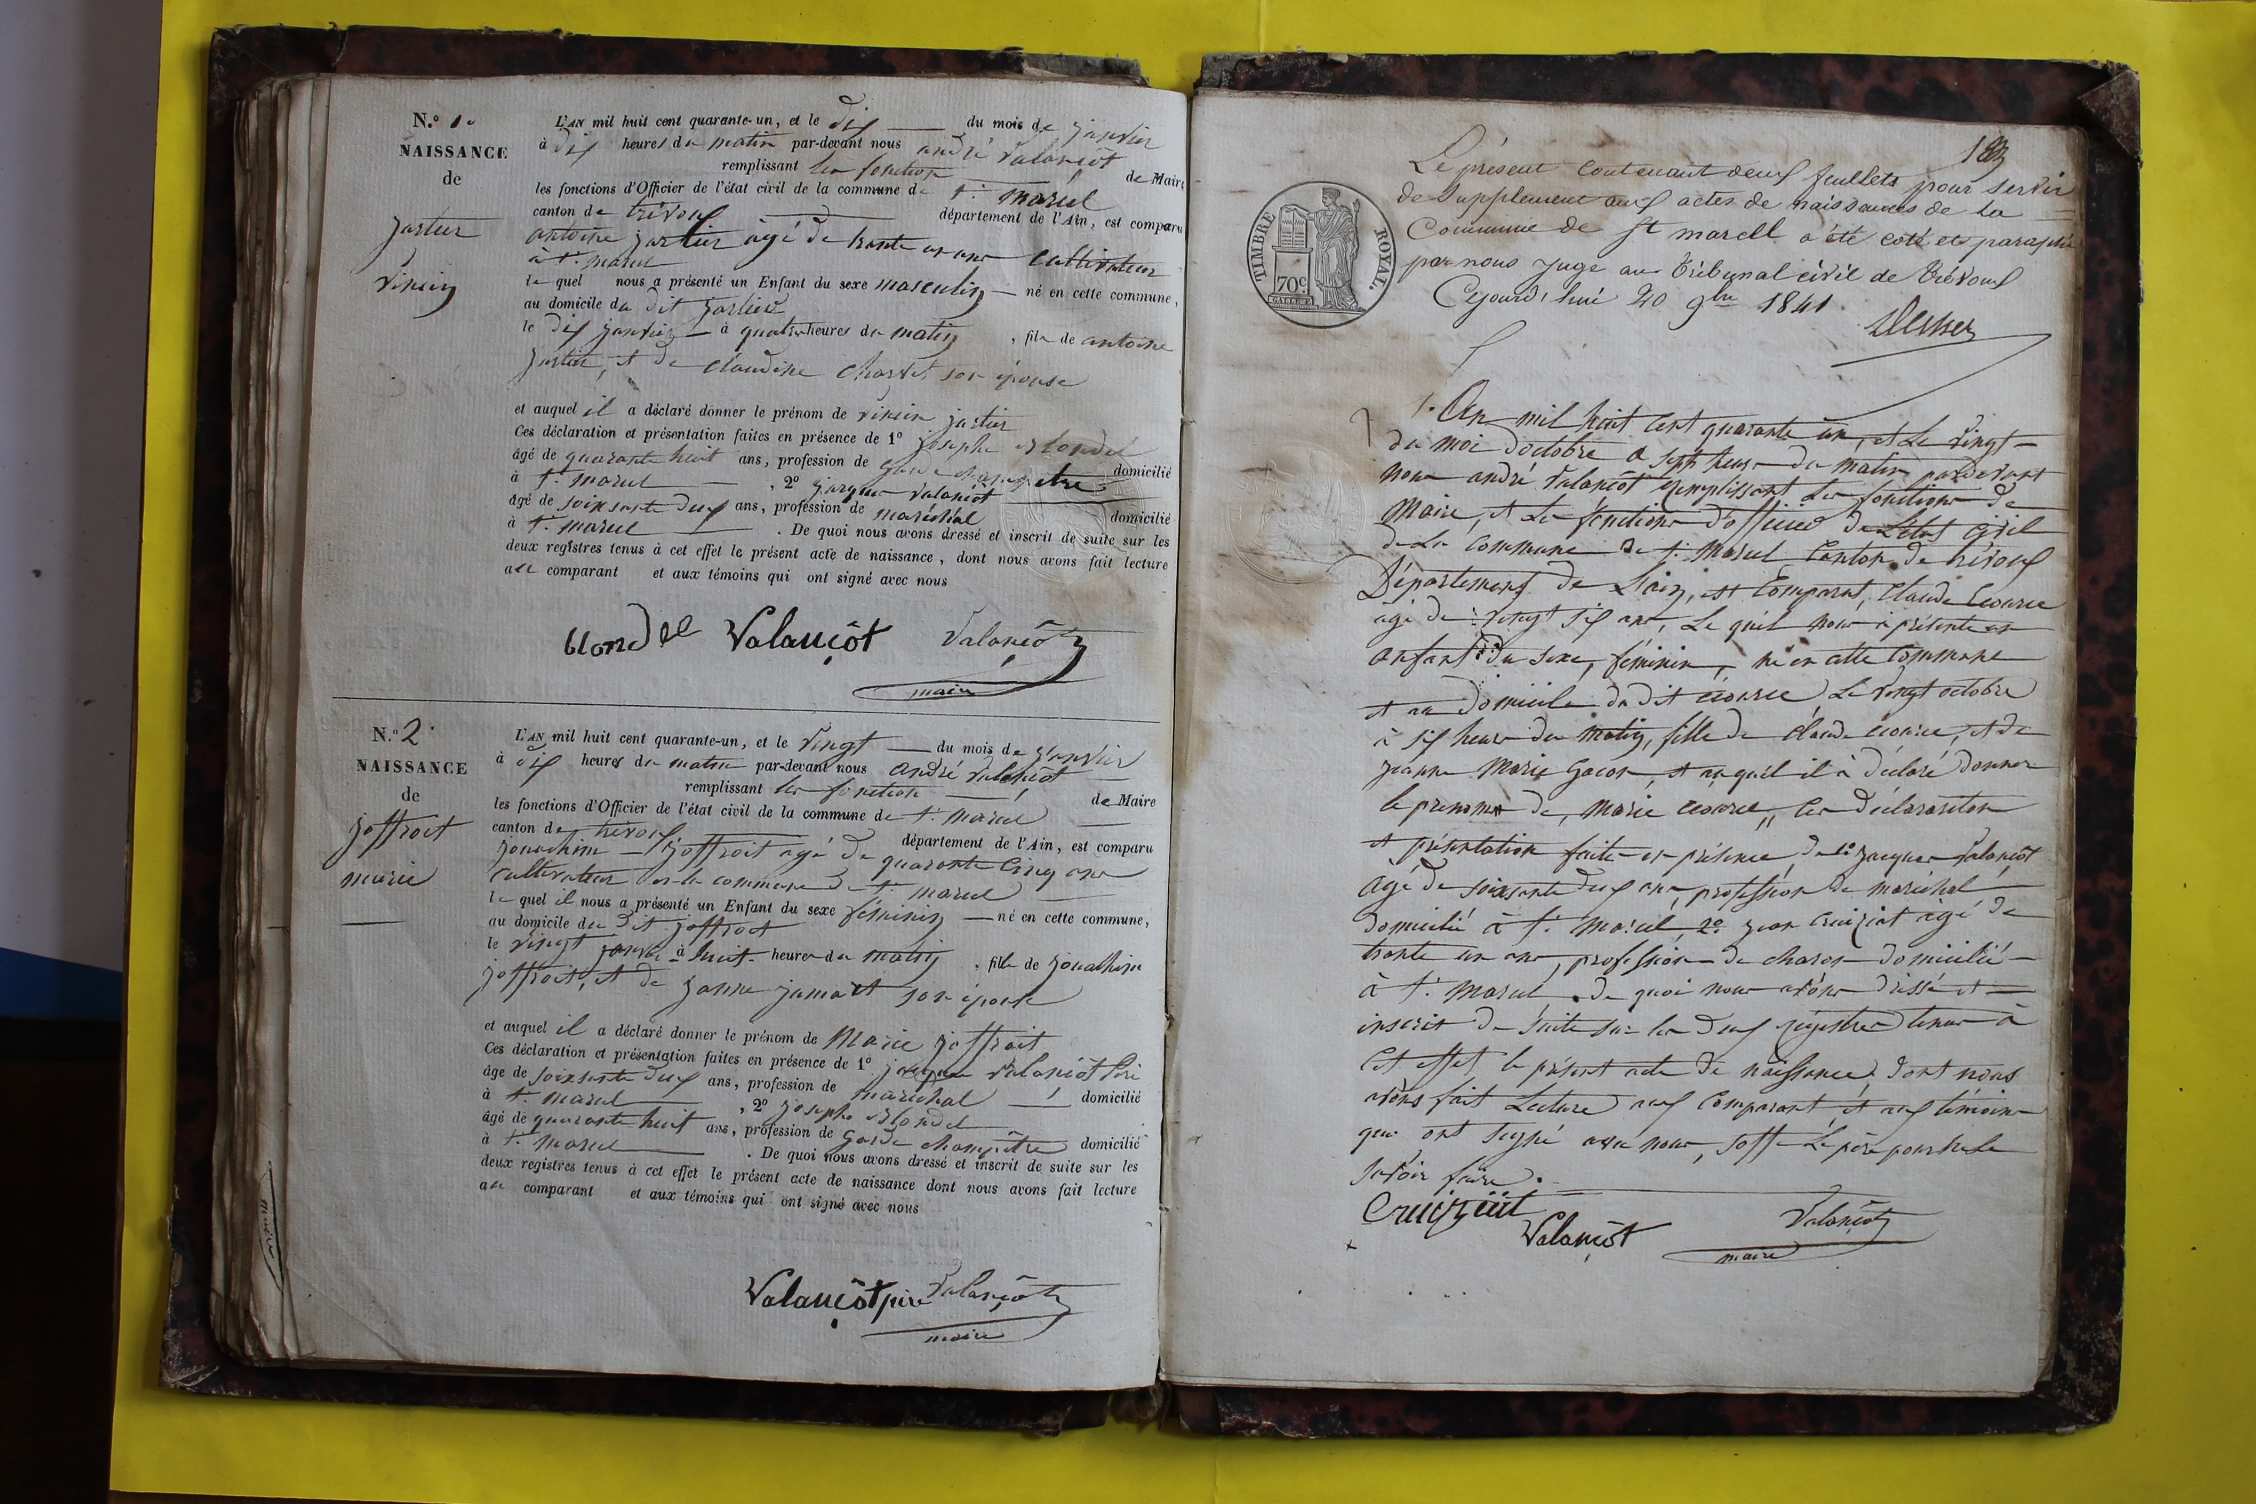 N.º 1.
NAISSANCE
de
jartier
vinsin
L'AN mil huit cent quarante-un, et le dix du mois de janvier
à dix heures du matin par-devant nous andré valançôt
remplissant les fonction de Maire
les fonctions d'Officier de l'état civil de la commune de st. marcel
canton de trévoux département de l'Ain, est comparu
antoine jartier agé de trante un ans cultivateur
à st. marcel
le quel nous a présenté un Enfant du sexe masculin né en cette commune,
au domicile du dit jartier
le dix janvier à quatre heures du matin, fils de antoine
jartier, et de claudine charvet son épouse
et auquel il a déclaré donner le prénom de vinsin jartier
Ces déclaration et présentation faites en présence de 1º josephe blondel
âgé de quarante huit ans, profession de garde champetre domicilié
à st. marcel, 2º jacque valançôt
âgé de soixsante deux ans, profession de maréchal domicilié
à st. marcel. De quoi nous avons dressé et inscrit de suite sur les
deux registres tenus à cet effet le présent acte de naissance, dont nous avons fait lecture
au comparant et aux témoins qui ont signé avec nous
blondel Valançôt Valançôt
maire
N.º 2.
NAISSANCE
de
joffroit
marie
L'AN mil huit cent quarante-un, et le vingt du mois de janvier
à dix heures du matin par-devant nous andré valançôt
remplissant les fonction de Maire
les fonctions d'Officier de l'état civil de la commune de st. marcel
canton de trévoux département de l'Ain, est comparu
jouachim joffroit agé de quarante cinq ans
cultivateur en la commune de st. marcel
le quel il nous a présenté un Enfant du sexe féminin né en cette commune,
au domicile du dit joffroit
le vingt janvier à huit heures du matin, fille de jouachim
joffroit, et de janne jamaet son épouse
et auquel il a déclaré donner le prénom de Marie joffroit
Ces déclaration et présentation faites en présence de 1º jacque valançôt père
âgé de soixsante deux ans, profession de maréchal domicilié
à st. marcel, 2º josephe blondel
âgé de quarante huit ans, profession de garde champêtre domicilié
à st. marcel. De quoi nous avons dressé et inscrit de suite sur les
deux registres tenus à cet effet le présent acte de naissance dont nous avons fait lecture
au comparant et aux témoins qui ont signé avec nous
Valançôt père Valançôt
maire
Le présent contenant deux feuillets pour servir
de supplement aux actes de naissances de la
Commune de St marcell a été coté et paraphé
par nous juge au Tribunal civil de Trévoux
Cejourd'hui 20 9bre 1841
TIMBRE ROYAL.
70c
1. An mil huit cent quarante un, et le vingt
du moi doctobre a sept heure du matin pardevant
nous andré valançôt remplissant les fonctions de
Maire, et les fonctions d'officier de l'état civil
de la commune de st. marcel, canton de trévoux
Département de l'ain, est comparut, claude écourie
agé de vingt six ans, le quel nous à présenté un
enfant du sexe, féminin, né en cette commune
et au domicile du dit écourie le vingt octobre
à six heures du matin, fille de claude écourie, et de
jeanne Marie Gacon, et au quel il à déclaré donner
le prenom de, marie écourie, ces déclarasiton
et présentation faite en présence de 1º jacques valançôt
agé de soixsante deux ans, profession de maréchal
domicilié à st. marcel, 2º jean cruiziat agé de
trante un ans, profession de charon domicilié
à st. marcel, de quoi nous avons dréssé et
inscrit de suite sur les deux régistres tenus à
cet effet le présent acte de naissance, dont nous
avons fait lecture aux comparant et aux témoins
qui ont signé avec nous, soffe le père pour ne le
savoir faire.
Cruiziat
Valançôt Valançôt
maire